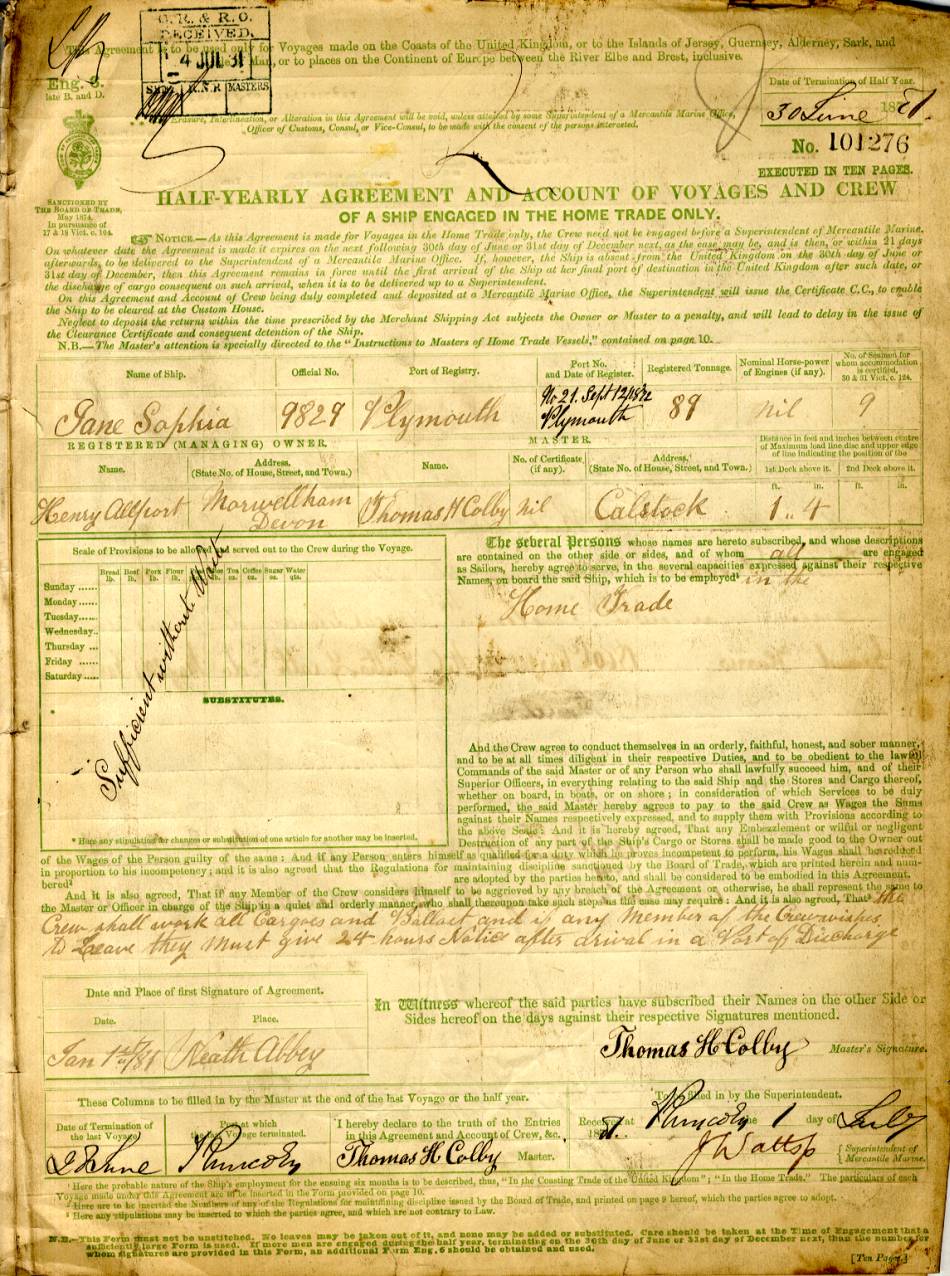 G. R. & R. O.
RECEIVED.
4 JUL 81
R.N.R MASTERS
This Agreement is to be used only for Voyages made on the Coasts of the United Kingdom, or to the Islands of Jersey, Guernsey, Alderney, Sark, and
Man, or to places on the Continent of Europe between the River Elbe and Brest, inclusive.
Eng. 6.
late B. and D.
Date of Termination of Half Year.
30 June 1881.
Erasure, Interlineation, or Alteration in this Agreement will be void, unless attested by some Superintendent of a Mercantile Marine Office,
Officer of Customs, Consul, or Vice-Consul, to be made with the consent of the persons interested.
No. 101276
EXECUTED IN TEN PAGES.
SANCTIONED BY
THE BOARD OF TRADE,
May 1874,
In pursuance of
17 & 18 Vict. c. 104.
HALF-YEARLY AGREEMENT AND ACCOUNT OF VOYAGES AND CREW
OF A SHIP ENGAGED IN THE HOME TRADE ONLY.
NOTICE.—As this Agreement is made for Voyages in the Home Trade only, the Crew need not be engaged before a Superintendent of Mercantile Marine.
On whatever date the Agreement is made it expires on the next following 30th day of June or 31st day of December next, as the case may be, and is then, or within 21 days
afterwards, to be delivered to the Superintendent of a Mercantile Marine Office. If, however, the Ship is absent from the United Kingdom on the 30th day of June or
31st day of December, then this Agreement remains in force until the first arrival of the Ship at her final port of destination in the United Kingdom after such date, or
the discharge of cargo consequent on such arrival, when it is to be delivered up to a Superintendent.
On this Agreement and Account of Crew being duly completed and deposited at a Mercantile Marine Office, the Superintendent will issue the Certificate C.C., to enable
the Ship to be cleared at the Custom House.
Neglect to deposit the returns within the time prescribed by the Merchant Shipping Act subjects the Owner or Master to a penalty, and will lead to delay in the issue of
the Clearance Certificate and consequent detention of the Ship.
N.B.—The Master's attention is specially directed to the "Instructions to Masters of Home Trade Vessels," contained on page 10.
Name of Ship. Official No. Port of Registry. Port No. and Date of Register. Registered Tonnage. Nominal Horse-power of Engines (if any). No. of Seamen for whom accommodation is certified, 30 & 31 Vict. c. 124.
Jane Sophia 9829 Plymouth No 21. Sept 12/1872 Plymouth 89 nil 9
REGISTERED (MANAGING) OWNER. MASTER. Distance in feet and inches between centre of Maximum load line disc and upper edge of line indicating the position of the
Name. Address, (State No. of House, Street, and Town.) Name. No. of Certificate (if any). Address, (State No. of House, Street, and Town.) 1st Deck above it. 2nd Deck above it.
ft. in. ft. in.
Henry Allport Morwellham Devon Thomas H Colby nil Calstock 1 .. 4
Scale of Provisions to be allowed and served out to the Crew during the Voyage.
Bread lb. Beef lb. Pork lb. Flour lb. Tea oz. Coffee oz. Sugar oz. Water qts.
Sunday ......
Monday ......
Tuesday......
Wednesday..
Thursday ....
Friday ......
Saturday ....
Sufficient without Waste
SUBSTITUTES.
* Here any stipulation for changes or substitution of one article for another may be inserted.
The several Persons whose names are hereto subscribed, and whose descriptions
are contained on the other side or sides, and of whom all are engaged
as Sailors, hereby agree to serve, in the several capacities expressed against their respective
Names, on board the said Ship, which is to be employed¹ in the
Home Trade
And the Crew agree to conduct themselves in an orderly, faithful, honest, and sober manner,
and to be at all times diligent in their respective Duties, and to be obedient to the lawful
Commands of the said Master or of any Person who shall lawfully succeed him, and of their
Superior Officers, in everything relating to the said Ship and the Stores and Cargo thereof,
whether on board, in boats, or on shore; in consideration of which Services to be duly
performed, the said Master hereby agrees to pay to the said Crew as Wages the Sums
against their Names respectively expressed, and to supply them with Provisions according to
the above Scale: And it is hereby agreed, That any Embezzlement or wilful or negligent
Destruction of any part of the Ship's Cargo or Stores shall be made good to the Owner out
of the Wages of the Person guilty of the same: And if any Person enters himself as qualified for a duty which he proves incompetent to perform, his Wages shall be reduced
in proportion to his incompetency; and it is also agreed that the Regulations for maintaining discipline sanctioned by the Board of Trade, which are printed herein and num-
bered² are adopted by the parties hereto, and shall be considered to be embodied in this Agreement.
And it is also agreed, That if any Member of the Crew considers himself to be aggrieved by any breach of the Agreement or otherwise, he shall represent the same to
the Master or Officer in charge of the Ship in a quiet and orderly manner, who shall thereupon take such steps as the case may require: And it is also agreed, That³ the
Crew shall work all Cargoes and Ballast and if any member of the Crew wishes
to Leave they must give 24 hours Notice after arival in a Port of Discharge
Date and Place of first Signature of Agreement.
Date. Place.
Jan 1st/81 Neath Abbey
In Witness whereof the said parties have subscribed their Names on the other Side or
Sides hereof on the days against their respective Signatures mentioned.
Thomas H Colby Master's Signature.
These Columns to be filled in by the Master at the end of the last Voyage or the half year.
To be filled in by the Superintendent.
Date of Termination of the last Voyage. Port at which Voyage terminated. I hereby declare to the truth of the Entries in this Agreement and Account of Crew, &c.
28 June Runcorn Thomas H Colby Master.
Received at Runcorn the 1 day of July
1881.
J Watts Superintendent of Mercantile Marine.
¹ Here the probable nature of the Ship's employment for the ensuing six months is to be described, thus, "In the Coasting Trade of the United Kingdom"; "In the Home Trade." The particulars of each
Voyage made under this Agreement are to be inserted in the Form provided on page 10.
² Here are to be inserted the Numbers of any of the Regulations for maintaining discipline issued by the Board of Trade, and printed on page 9 hereof, which the parties agree to adopt.
³ Here any stipulations may be inserted to which the parties agree, and which are not contrary to Law.
N.B.—This Form must not be unstitched. No leaves may be taken out of it, and none may be added or substituted. Care should be taken at the Time of Engagement that a
sufficiently large Form is used. If more men are engaged during the half year, terminating on the 30th day of June or 31st day of December next, than the number for
whom signatures are provided in this Form, an additional Form Eng. 6 should be obtained and used.
[Ten Pages.]